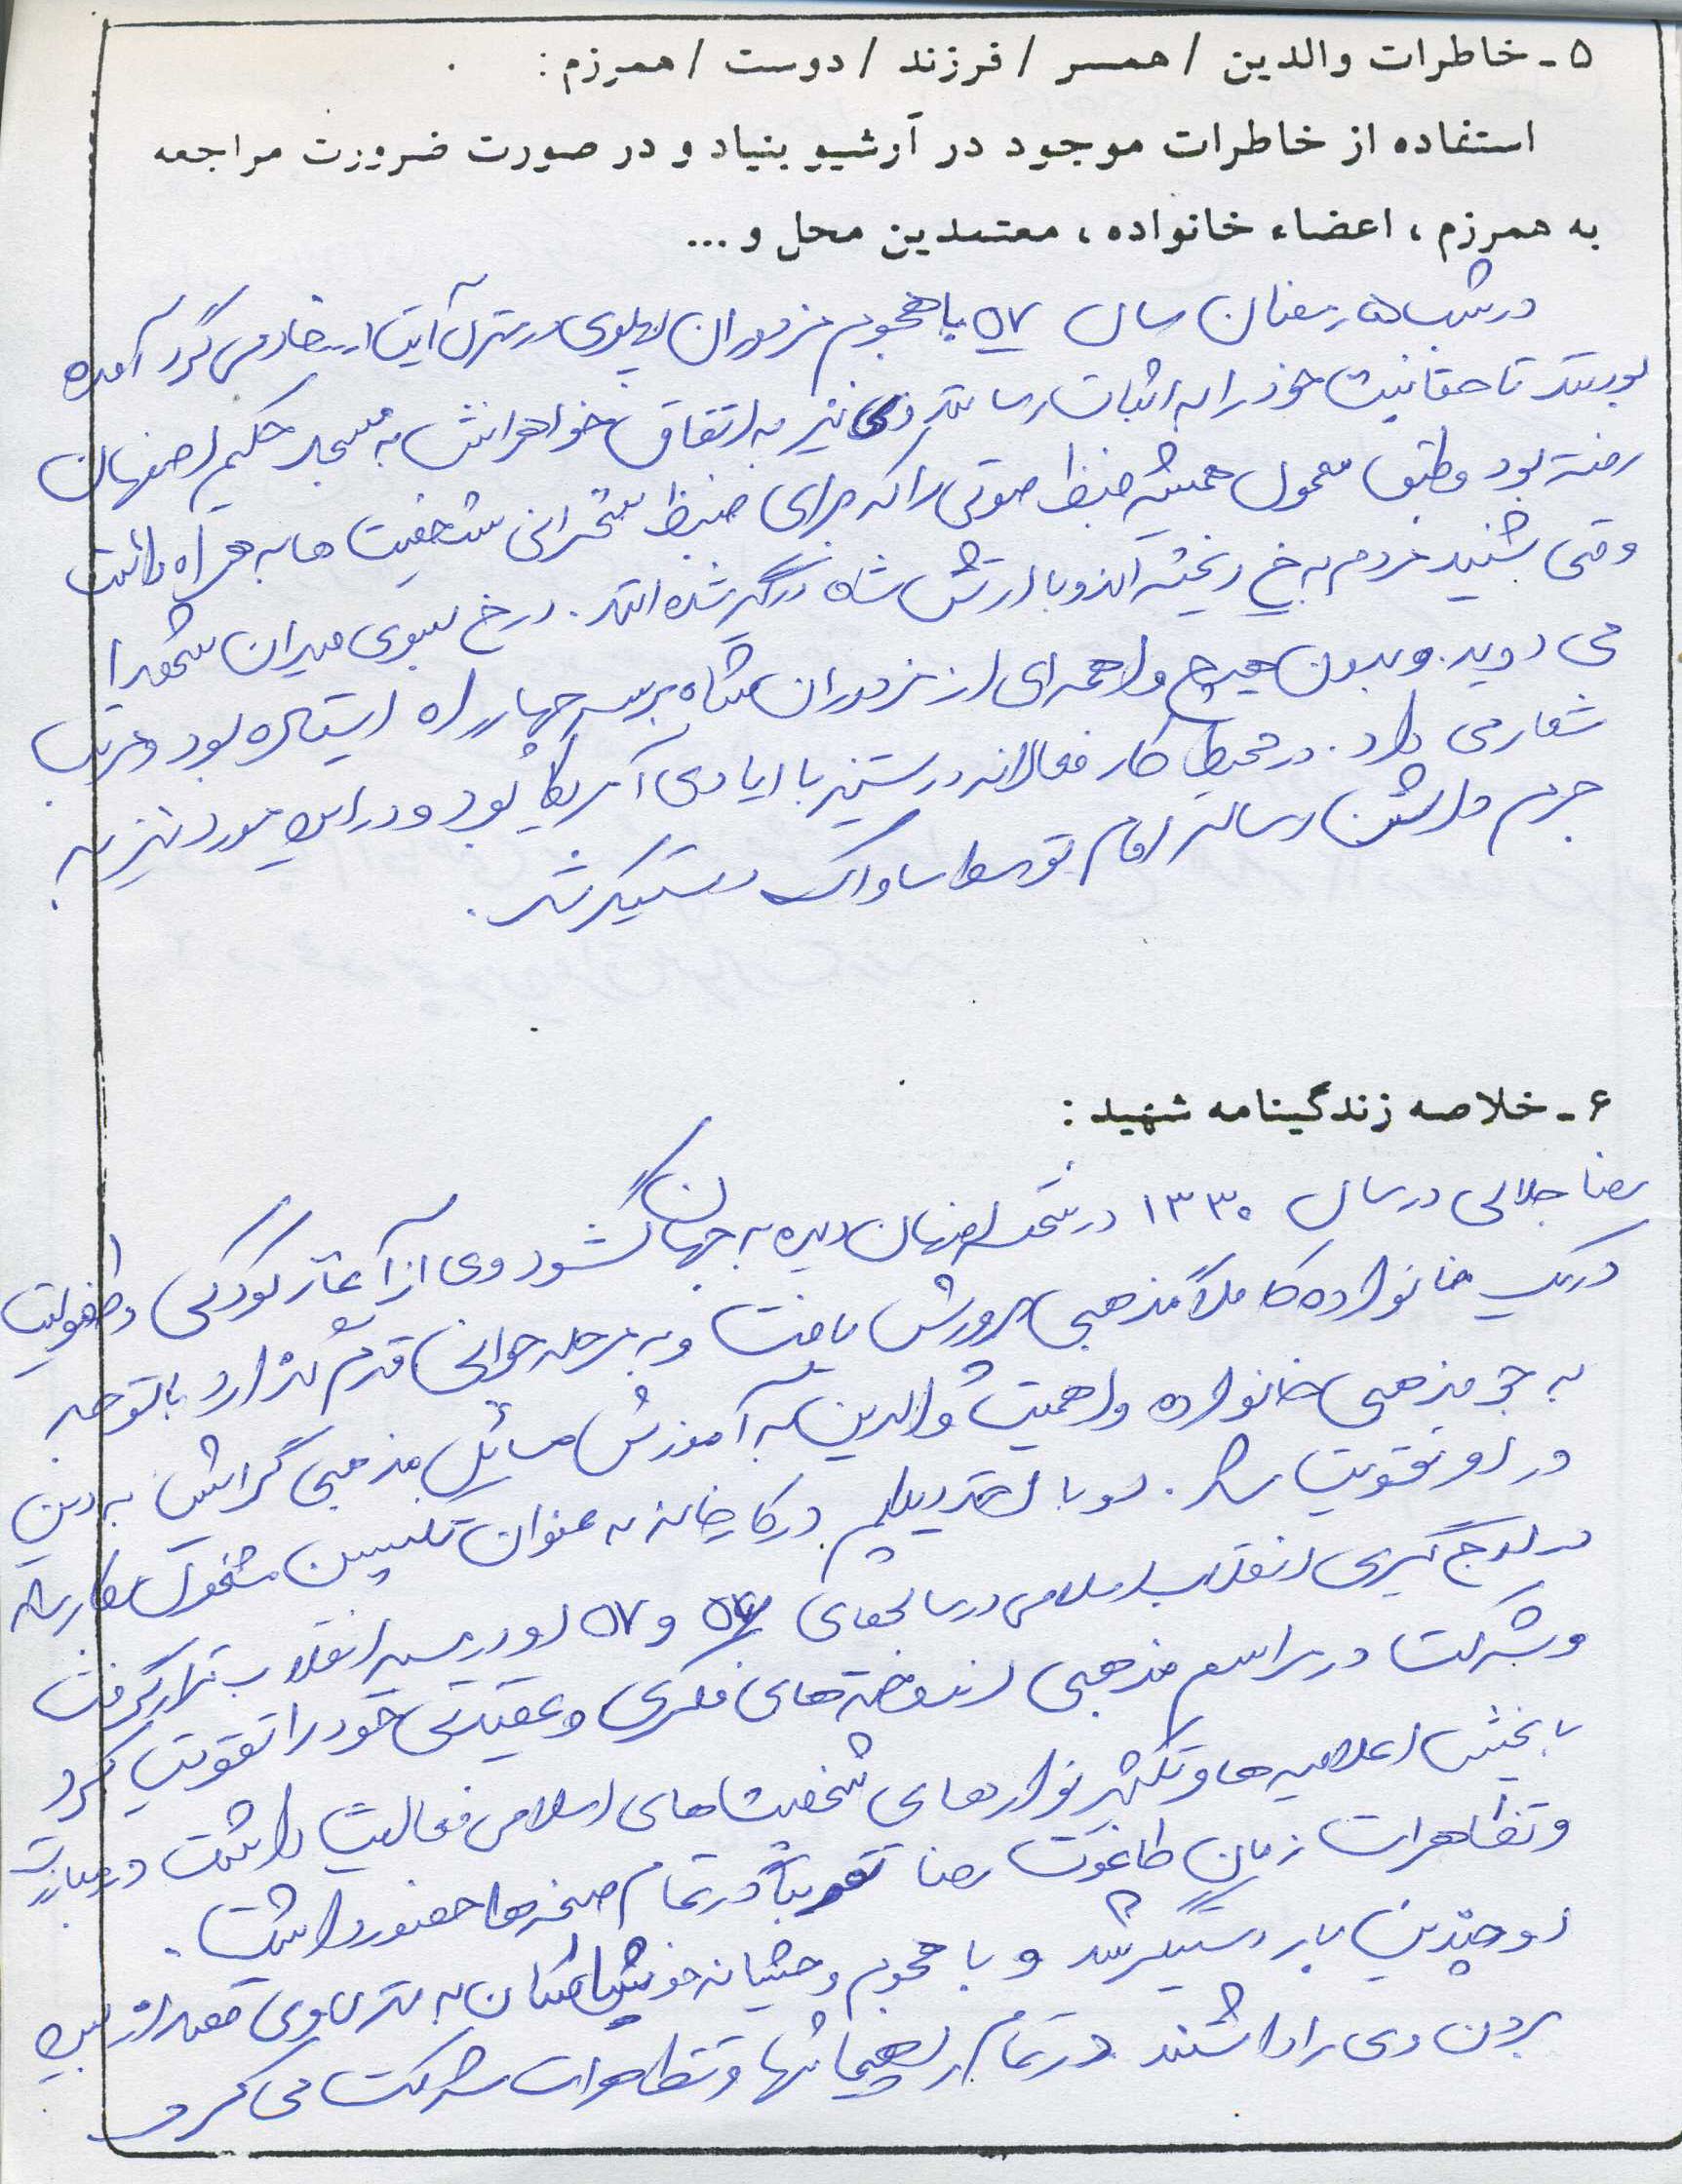 ۵ - خاطرات والدین / همسر / فرزند / دوست / همرزم :
استفاده از خاطرات موجود در آرشیو بنیاد و در صورت ضرورت مراجعه
به همرزم ، اعضاء خانواده ، معتمدین محل و ...
در شب ۵ رمضان سال ۵۷ با هجوم مزدوران پهلوی در منزل آیت ا... خادمی گرد آمده
بودند تا حقانیت خود را به اثبات رسانند وی نیز به اتفاق خواهرانش به مسجد حکیم اصفهان
رفته بود و طبق معمول همیشه ضبط صوتی را که برای ضبط سخنرانی شخصیت ها به همراه داشت
وقتی شنید مردم به خ ریخته اند و با ارتش شاه درگیر شده اند . در خ بسوی میدان شهدا
می دوید . و بدون هیچ واهمه ای از مزدوران شاه بر سر چهارراه ایستاده بود و مرتب
شعار می داد . در محیط کار فعالانه در ستیز با ایادی آمریکا بود و در این مورد نیز به
جرم داشتن رساله امام توسط ساواک دستگیر شد .
۶ - خلاصه زندگینامه شهید :
رضا جلالی در سال ۱۳۳۰ در شهر اصفهان دیده به جهان گشود وی از آغاز کودکی و طفولیت
در یک خانواده کاملاً مذهبی پرورش یافت و به مرحله جوانی قدم گذارد با توجه
به جو مذهبی خانواده و اهمیت والدین به آموزش مسائل مذهبی گرایش به دین
در او تقویت شد . او با اخذ دیپلم در کارخانه به عنوان تکنسین مشغول بکار شد
در اوج گیری انقلاب اسلامی در سالهای ۵۶ و ۵۷ او در مسیر انقلاب قرار گرفت
و شرکت در مراسم مذهبی اندوخته های فکری و عقیدتی خود را تقویت کرد
با پخش اعلامیه ها و تکثیر نوارهای شخصیت های اسلامی فعالیت داشت در مبارزات
و تظاهرات زمان طاغوت رضا تقریباً در تمام صحنه ها حضور داشت .
او چندین بار دستگیر شد و با هجوم وحشیانه به منزل وی قصد از بین
بردن وی را داشتند در تمام راهپیمائیها و تظاهرات شرکت می کرد